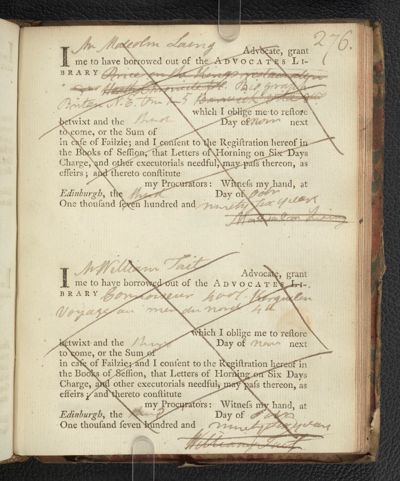 276.
I Mr Malcolm Laing Advocate, grant
me to have borrowed out of the ADVOCATES LI-
BRARY
which I oblige me to reſtore
betwixt and the third Day of next
to come, or the Sum of
in caſe of Failzie; and I conſent to the Regiſtration hereof in
the Books of Seſſion, that Letters of Horning on Six Days
Charge, and other executorials needful, may paſs thereon, as
effeirs; and thereto conſtitute
my Procurators: Witneſs my hand, at
Edinburgh, the third Day of
One thouſand ſeven hundred and ninety six years
Malcolm Laing
I Mr William Tait Advocate, grant
me to have borrowed out of the ADVOCATES LI-
BRARY Kerguelen
Voyage au mer du nord 4to
which I oblige me to reſtore
betwixt and the third Day of next
to come, or the Sum of
in caſe of Failzie; and I conſent to the Regiſtration hereof in
the Books of Seſſion, that Letters of Horning on Six Days
Charge, and other executorials needful, may paſs thereon, as
effeirs; and thereto conſtitute
my Procurators: Witneſs my hand, at
Edinburgh, the third Day of
One thouſand ſeven hundred and ninety six years
William Tait